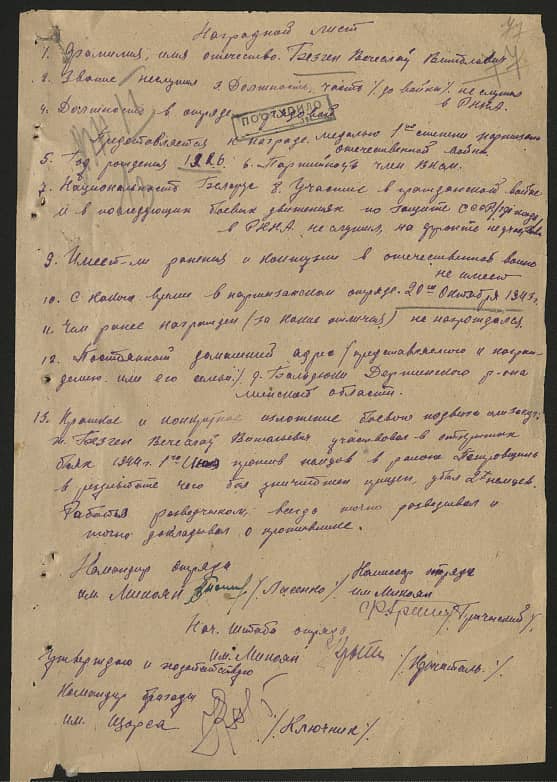 77
Наградной лист
77
1. Фамилия, имя отчество. Безген Вечеслав Витальевич
2. Звание не служил 3. Должность, часть /до войны/ не служил
в РККА.
4. Должность в отряде
ПОСТУПИЛО
Предоставляется к награде медалью 1ой степени партизана
отечественной войны
5. Год рождения 1926 6. Партийность член ВЛКСМ.
7. Национальность Беларус 8. Участие в гражданской войне
и в последующих боевых движениях по защите СССР /где когда/
в РККА не служил, на фронте не
9. Имеет ли ранения и контузии в отечественной войне
не имеет
10. С какого время в партизанском отряде. 20го Октября 1943 г.
11. Чем ранее награжден (за какие отличия) не награждался.
12. Постоянный домашний адрес /представляемого к награж-
дению или его семьи/ д. Дзержинского р-она
Минской области.
13. Краткое и конкретное изложение боевого подвига или заслуг.
т. Безген Вечеслав Витальевич участвовал в открытых
боях 1944 г. против немцев в районе
в результате чего был прицеп, убил 2х немцев.
Работая разведчиком, всегда точно разведывал и
точно докладывал о противнике.
Командир отряда
Комиссар отряда
им. Микоян /Ласенко/
им Микоян
Нач. Штаба отряда
им. Микоян
Утверждаю и ходатайствую
Командир бригады
им. Щорса /Ключник/